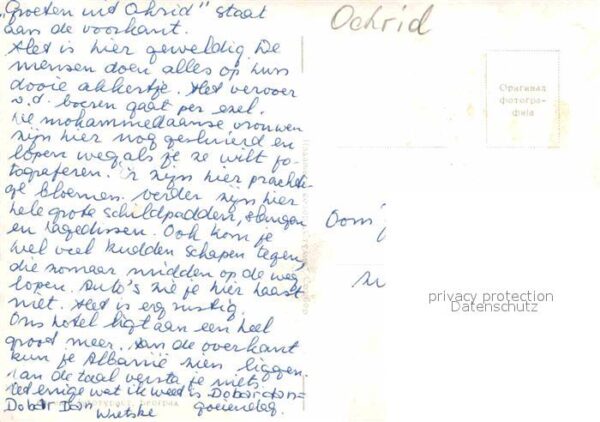 „Groeten uit Ohrid” staat
aan de voorkant.
Het is hier geweldig. De
mensen doen alles op hun
dooie akkertje. Het vervoer
v.d. boeren gaat per ezel.
De mohammedaanse vrouwen
zijn hier nog gesluierd en
lopen weg als je ze wilt fo-
tograferen. Er zijn hier prachti-
ge bloemen. Verder zijn hier
hele grote schildpadden, slangen
en hagedissen. Ook kom je
heel veel kudden schapen tegen,
die zomaar midden op de weg
lopen. Auto's zie je hier haast
niet. Het is erg rustig.
Ons hotel ligt aan een heel
groot meer. Aan de overkant
kun je Albanië zien liggen.
Van de taal versta je niets.
Het enige wat ik weet is Dobar dan =
Dobar Dan goeiendag.
Wietske
Ochrid
Оригинал
фотогра-
фија
Oom
privacy protection
Datenschutz